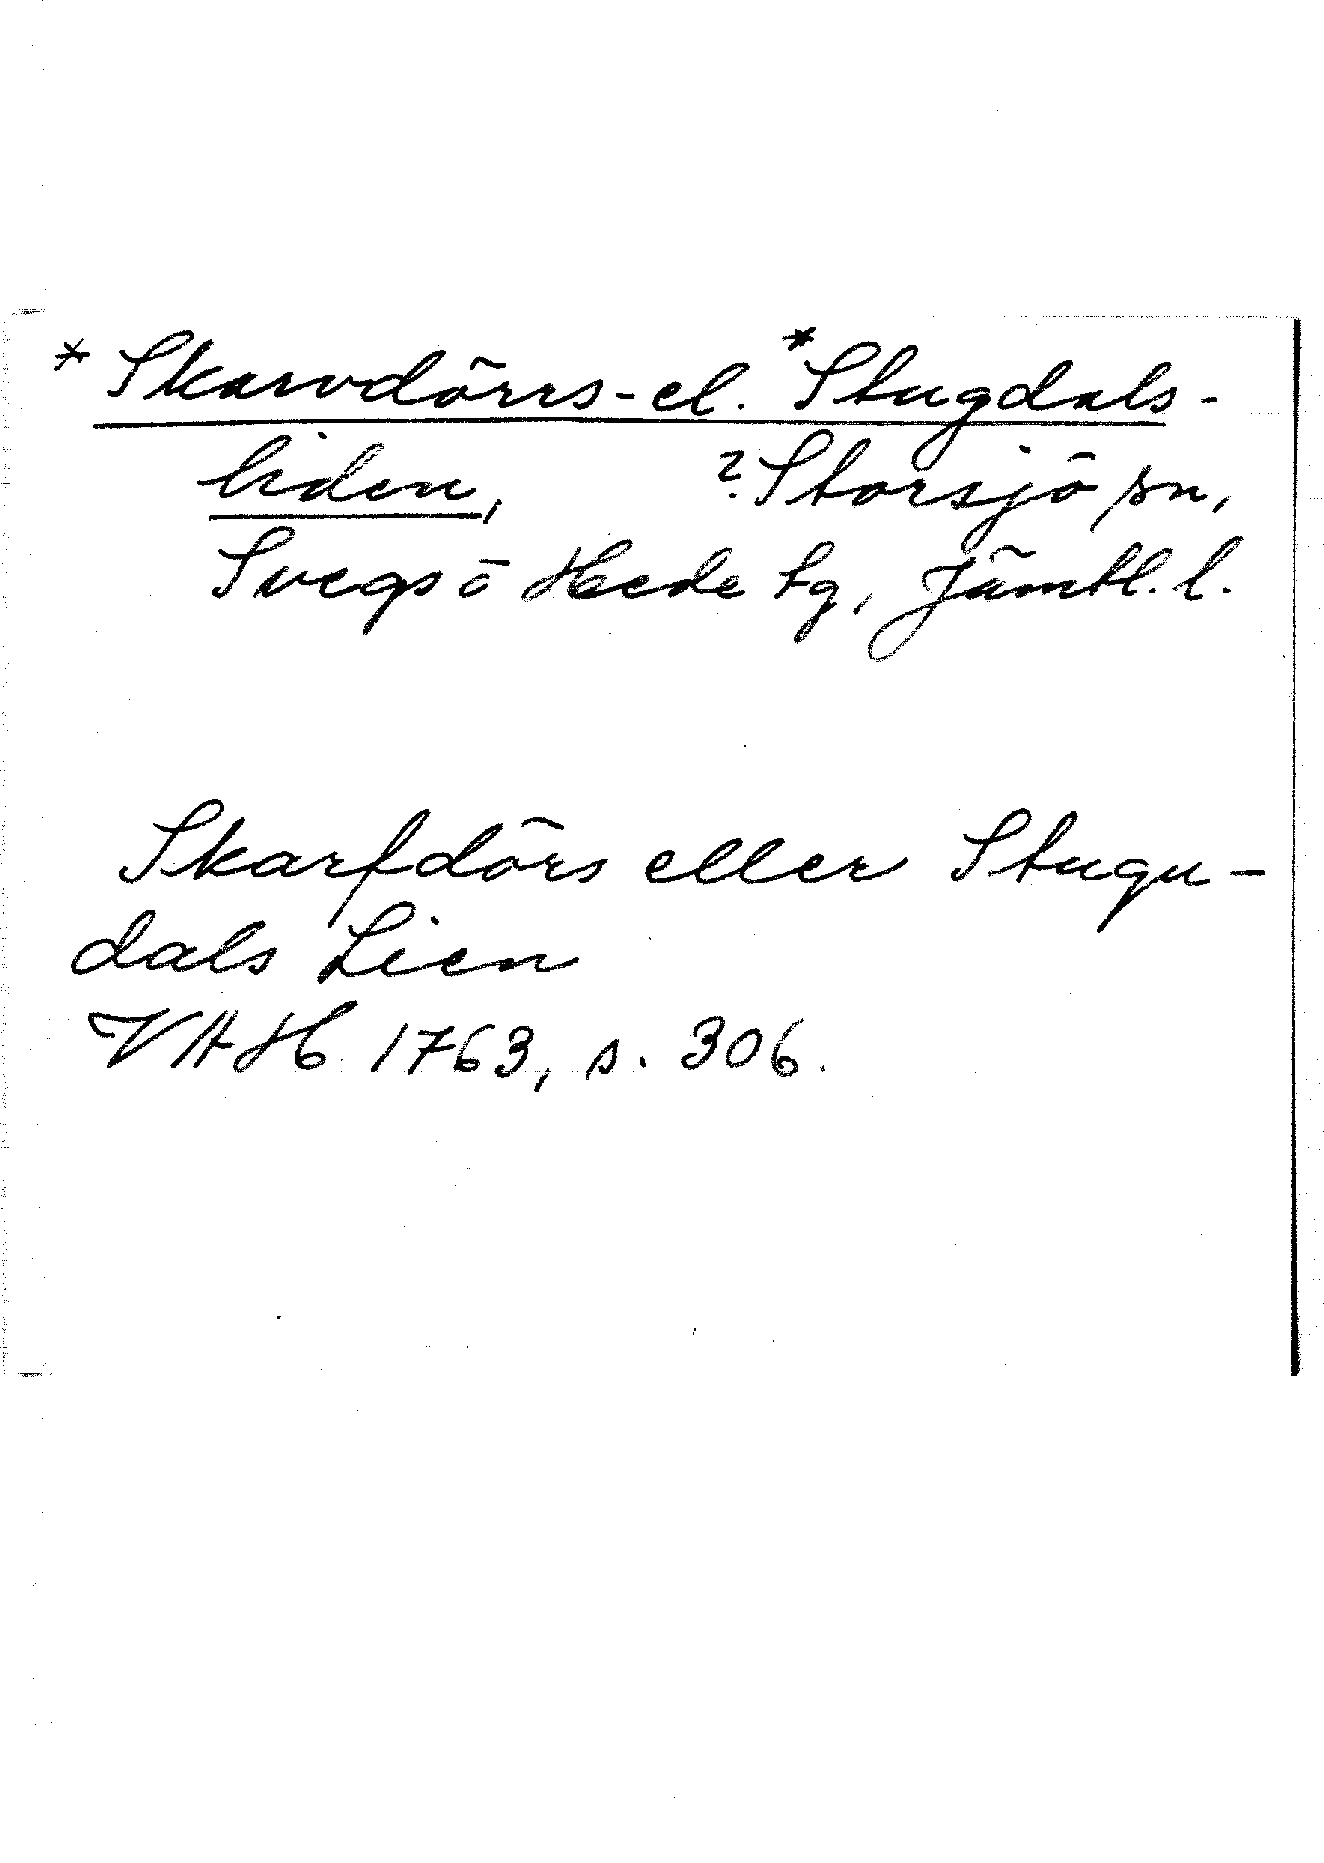 * Skarvdörrs- el. *Stugdals-
liden, ? Storsjö sn,
Svegs o Hede tg, Jämtl. l.
Skarfdörs eller Stugu-
dals Lien
VAH 1763, s. 306.